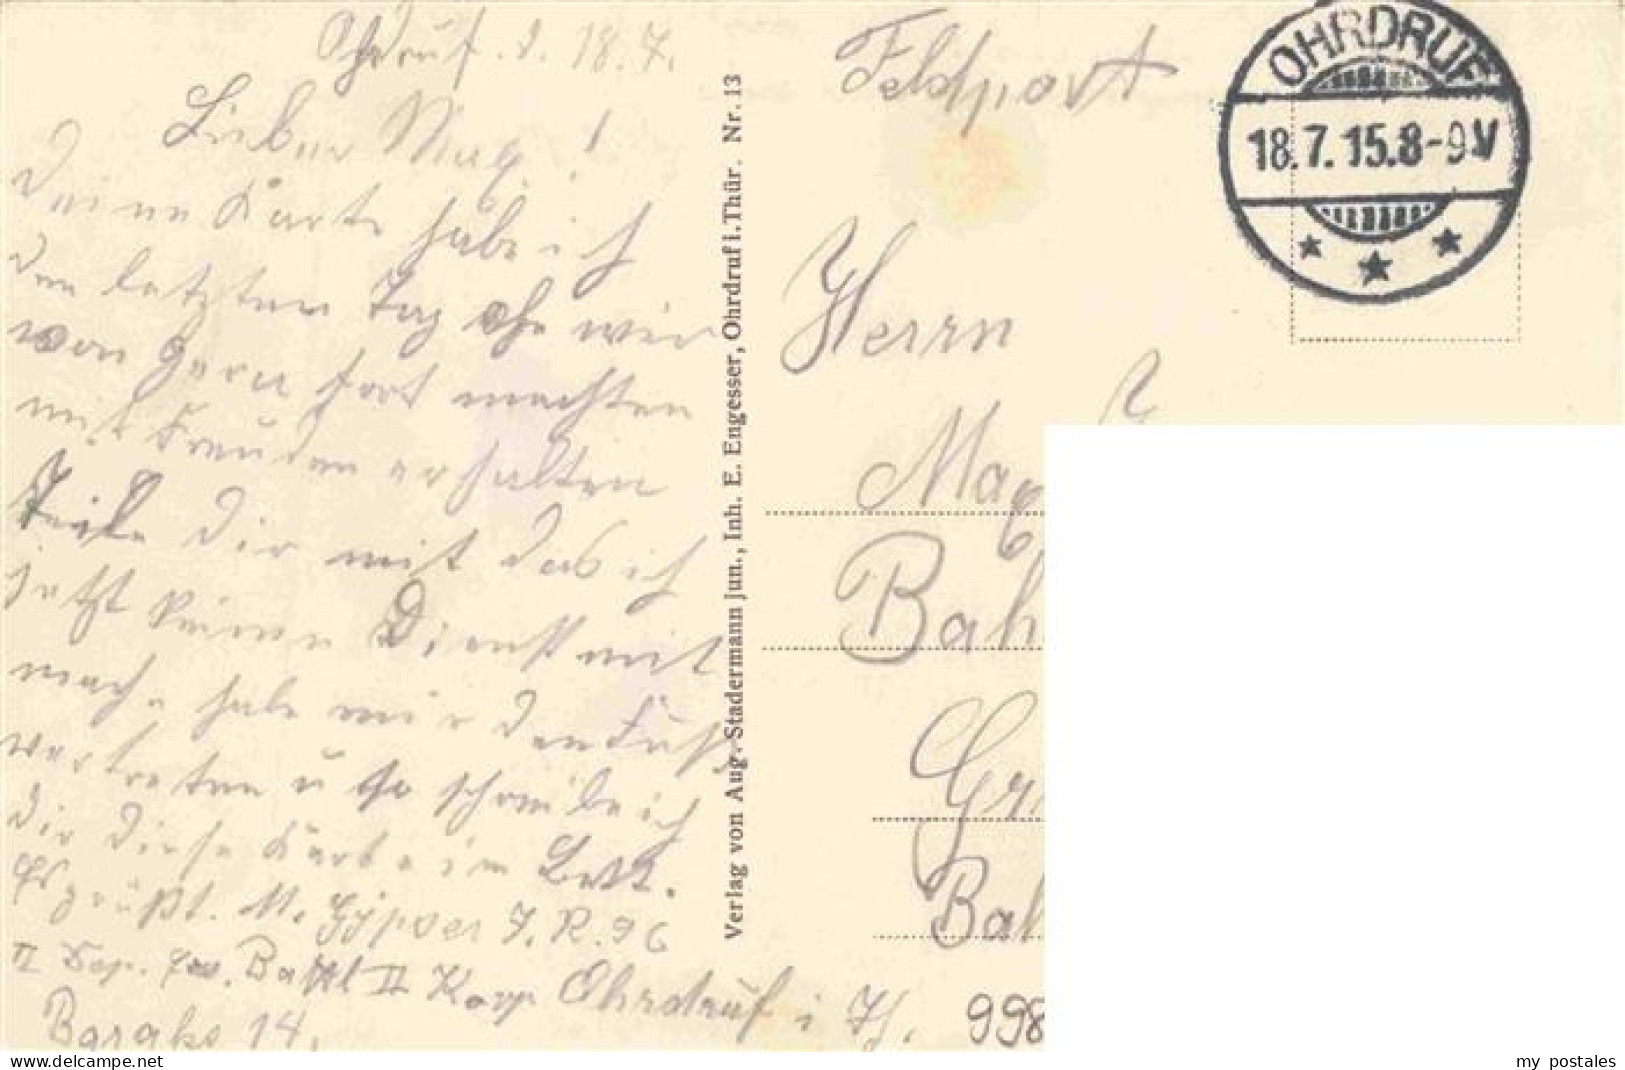 Ohrdruf. d. 18.7.
Lieber Max!
Deine Karte habe ich
den letzten Tag ehe wir
von Gera fort machten
mit Freuden erhalten
Teile Dir mit das ich
jetzt keinen Dienst mit
mache habe mir den Fuß
vertreten u so schreibe ich
Dir diese Karte im Bett.
Es grüßt. M. J. R. 96
II Dep. Ers. Battl II Komp Ohrdruf i Th.
Barake 14.
Verlag von Aug. Stadermann jun., Inh. E. Engesser, Ohrdruf i. Thür. Nr. 13
Feldpost
OHRDRUF
18.7.15.8-9V
Herrn
Max
Bah
Gr
Bah
998
my postales
delcampe.net